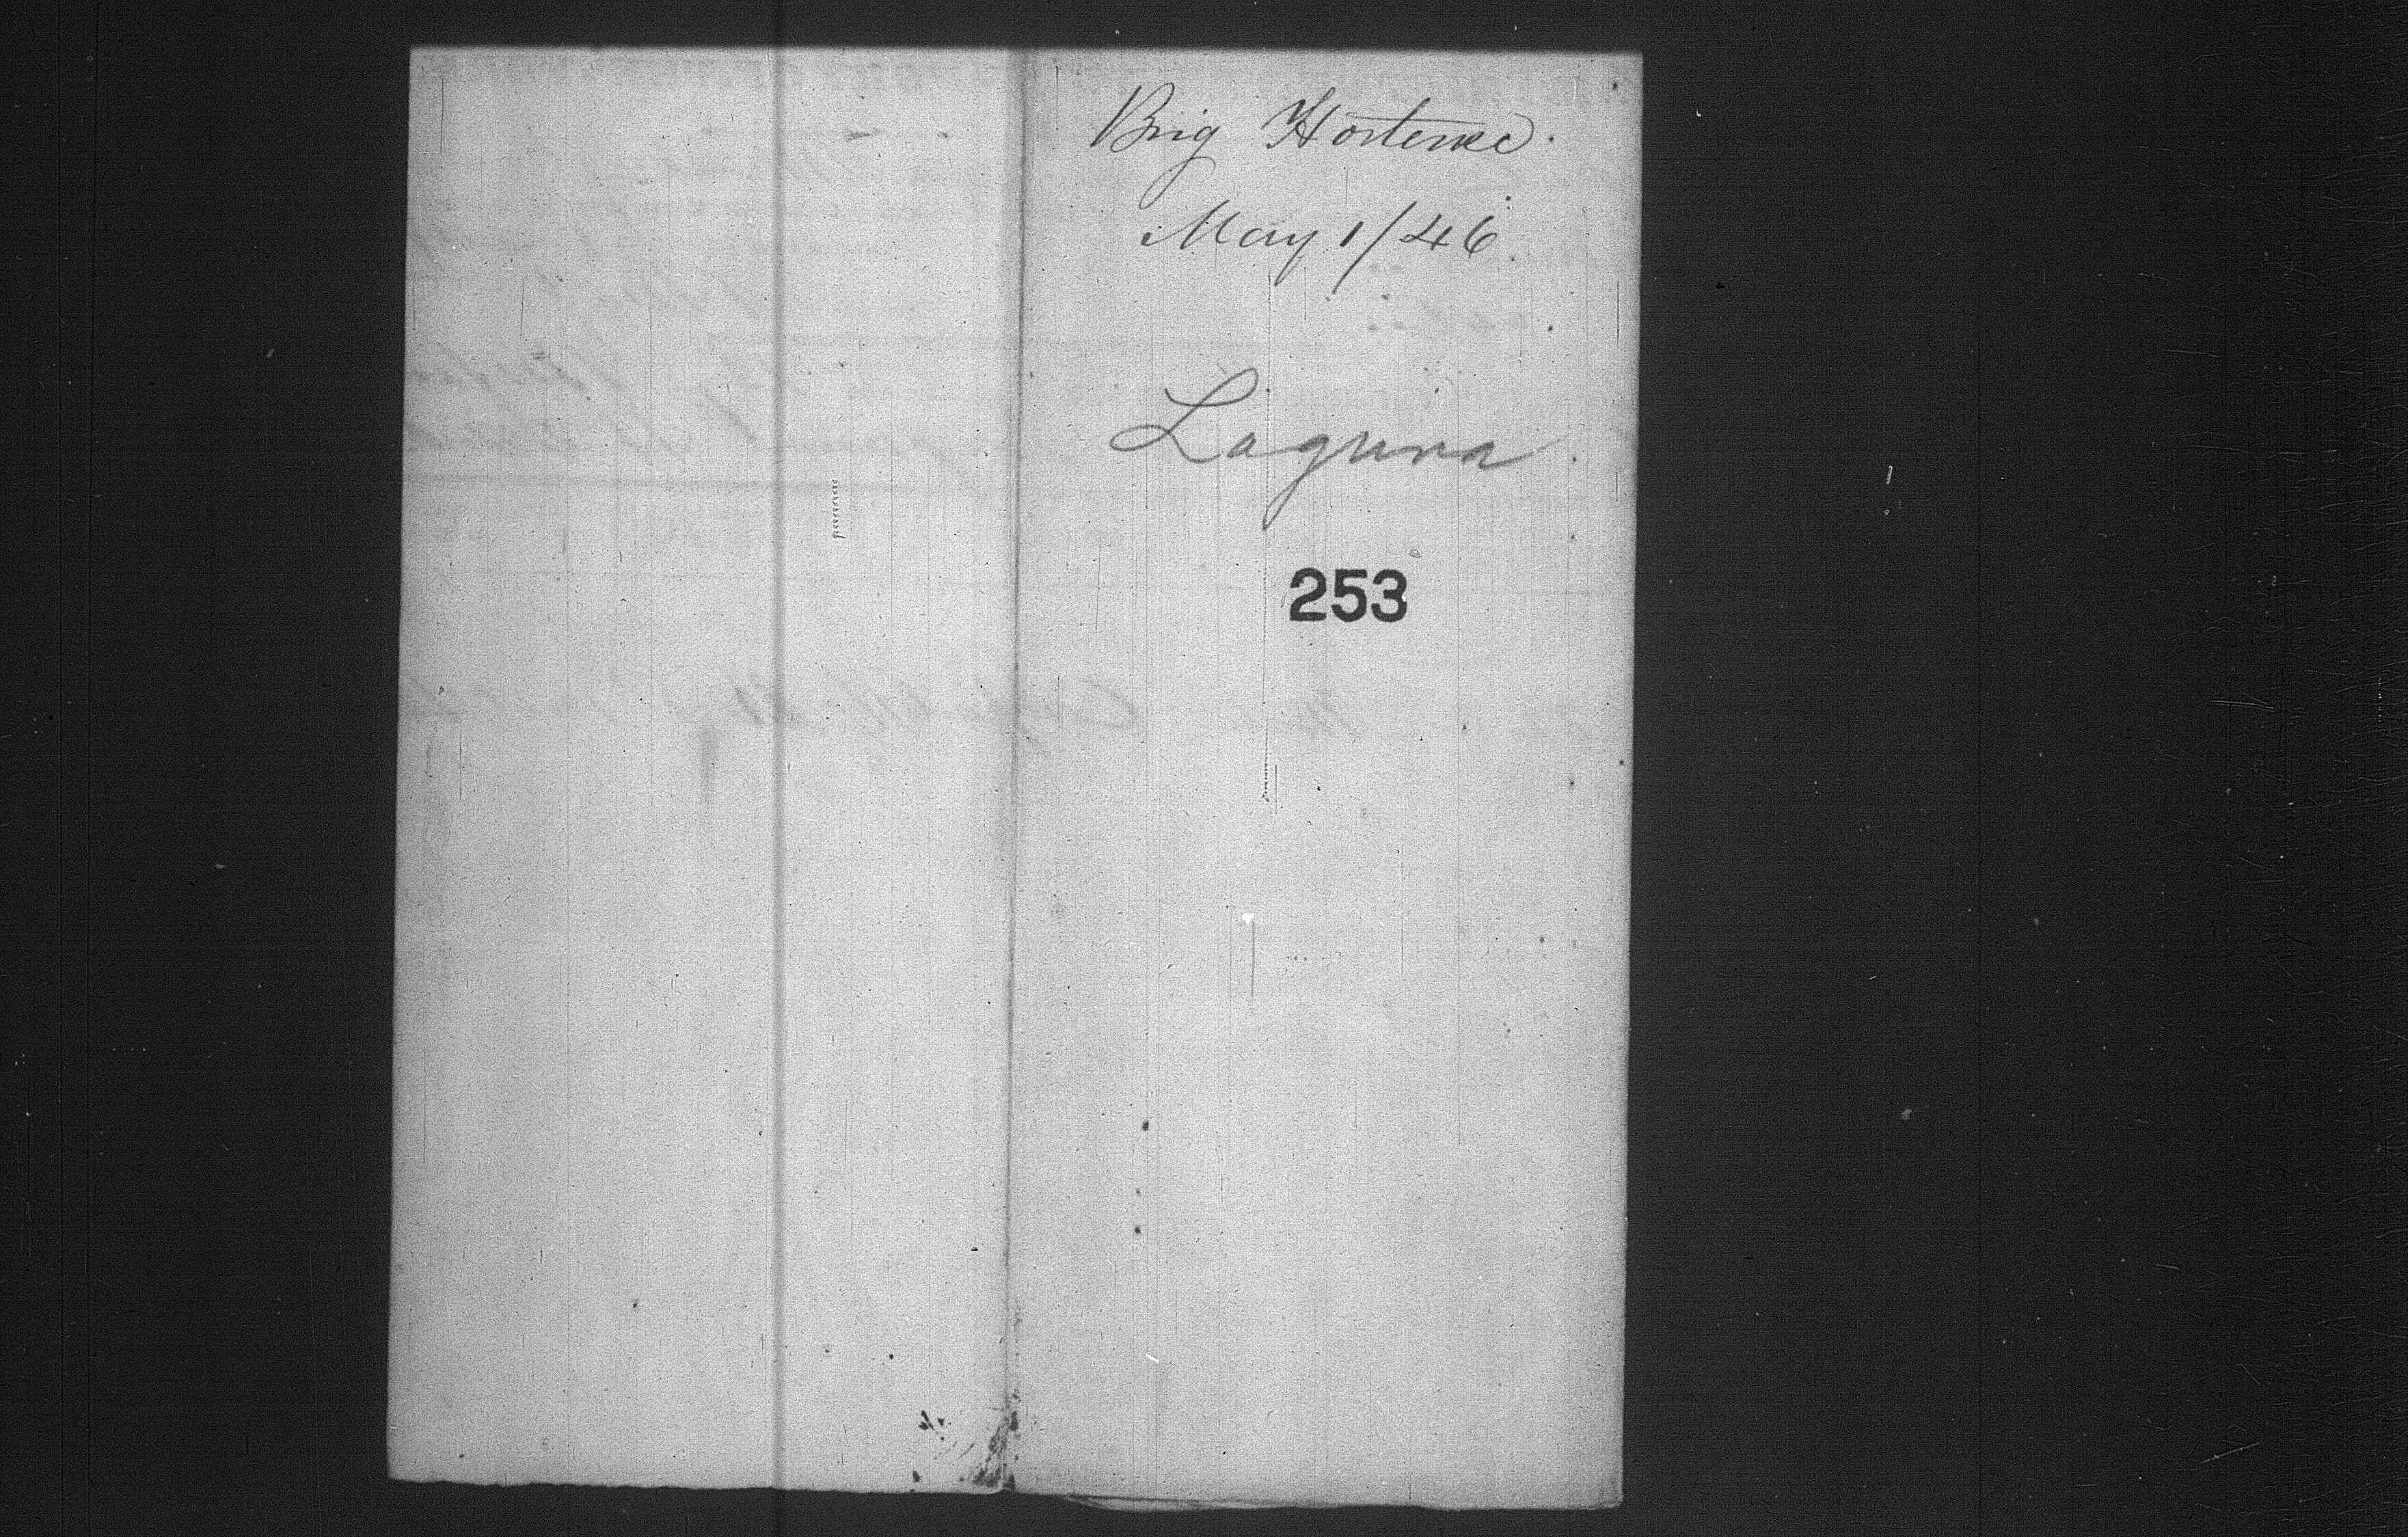 Brig Hortense.
May 1/46
Laguna.
253